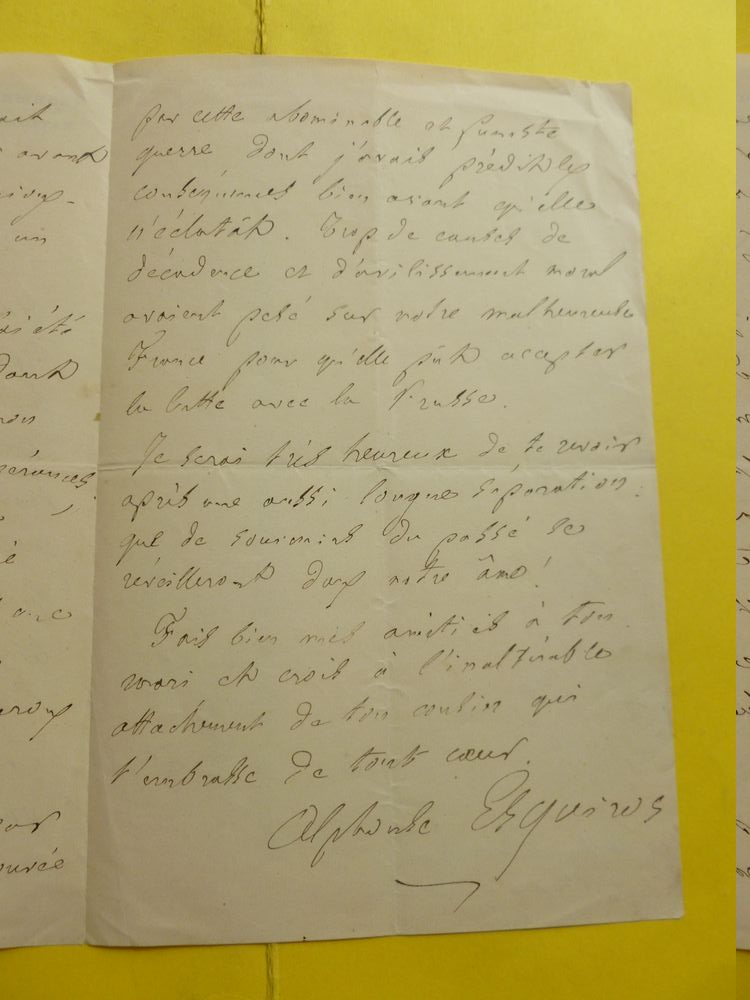 par cette abominable et funeste
guerre dont j'avais prédit les
conséquences bien avant qu'elle
n'éclatât. Trop de causes de
décadence et d'avilissement moral
avaient pesé sur notre malheureuse
France pour qu'elle pût accepter
la lutte avec la Prusse.
Je serai très heureux de te revoir
après une aussi longue séparation :
que de souvenirs du passé se
réveilleront dans notre âme !
Fais bien mes amitiés à ton
mari et crois à l'inaltérable
attachement de ton cousin qui
t'embrasse de tout cœur.
Alphonse Esquiros
avant
un
dont